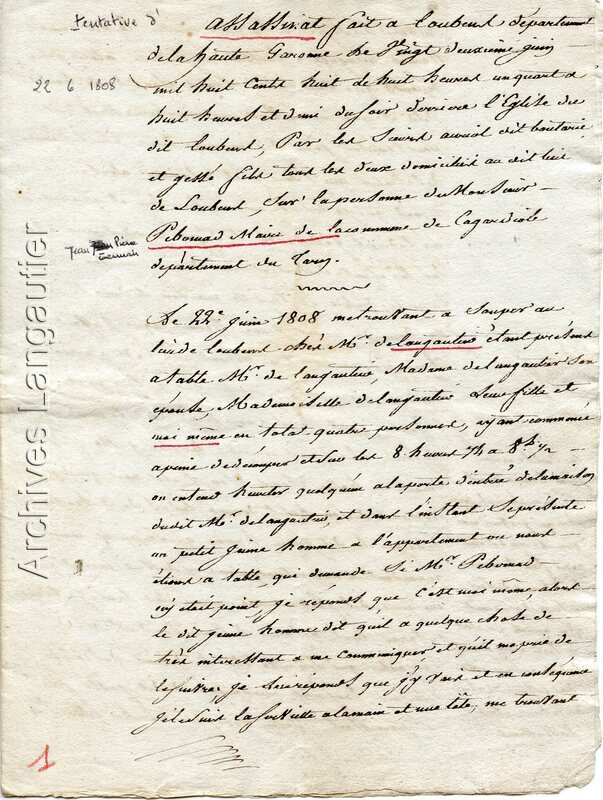 tentative d'
assassinat fait a Loubens departement
de la haute Garonne Le Vingt deuxieme juin
mil huit Cents huit de huit heures un quart a
huit heures et demi du soir derriere l'Eglise du
dit Loubens, Par les Sieurs auriol dit boutaric
et gessé fils tous les deux domicilies au dit lieu
de Loubens, Sur la personne de Monsieur
Pebernad Maire de la commune de Cagardiole
departement du Tarn.
22 6 1808
Jean Pierre
Germain
Le 22e. juin 1808 me trouvant a Souper au
lieu de Loubens chés Mr. de langautier etant présents
a table Mr. de langautier, Madame de langautier Son
épouse, Mademoiselle de langautier Leur fille et
moi même en total quatre personnes, ayant commencé
a peine de découper et Sur les 8 heures 1/4 a 8h. 1/2
on entend heurter quelqu'un a la porte d'entrée de la maison
du dit Mr. de langautier, et dans l'instant Se présente
un petit jeune homme a l'appartement ou nous
étions a table qui demande Si Mr. Pebernad
n'y etait point, je réponds que c'est moi même, alors
le dit jeune homme dit qu'il a quelque chose de
très interessant a me communiquer et qu'il me prie de
le suivre, je lui réponds que j'y vais et en conséquence
je le Suis la Serviette a la main et nue tête, me trouvant
1
Archives Langautier